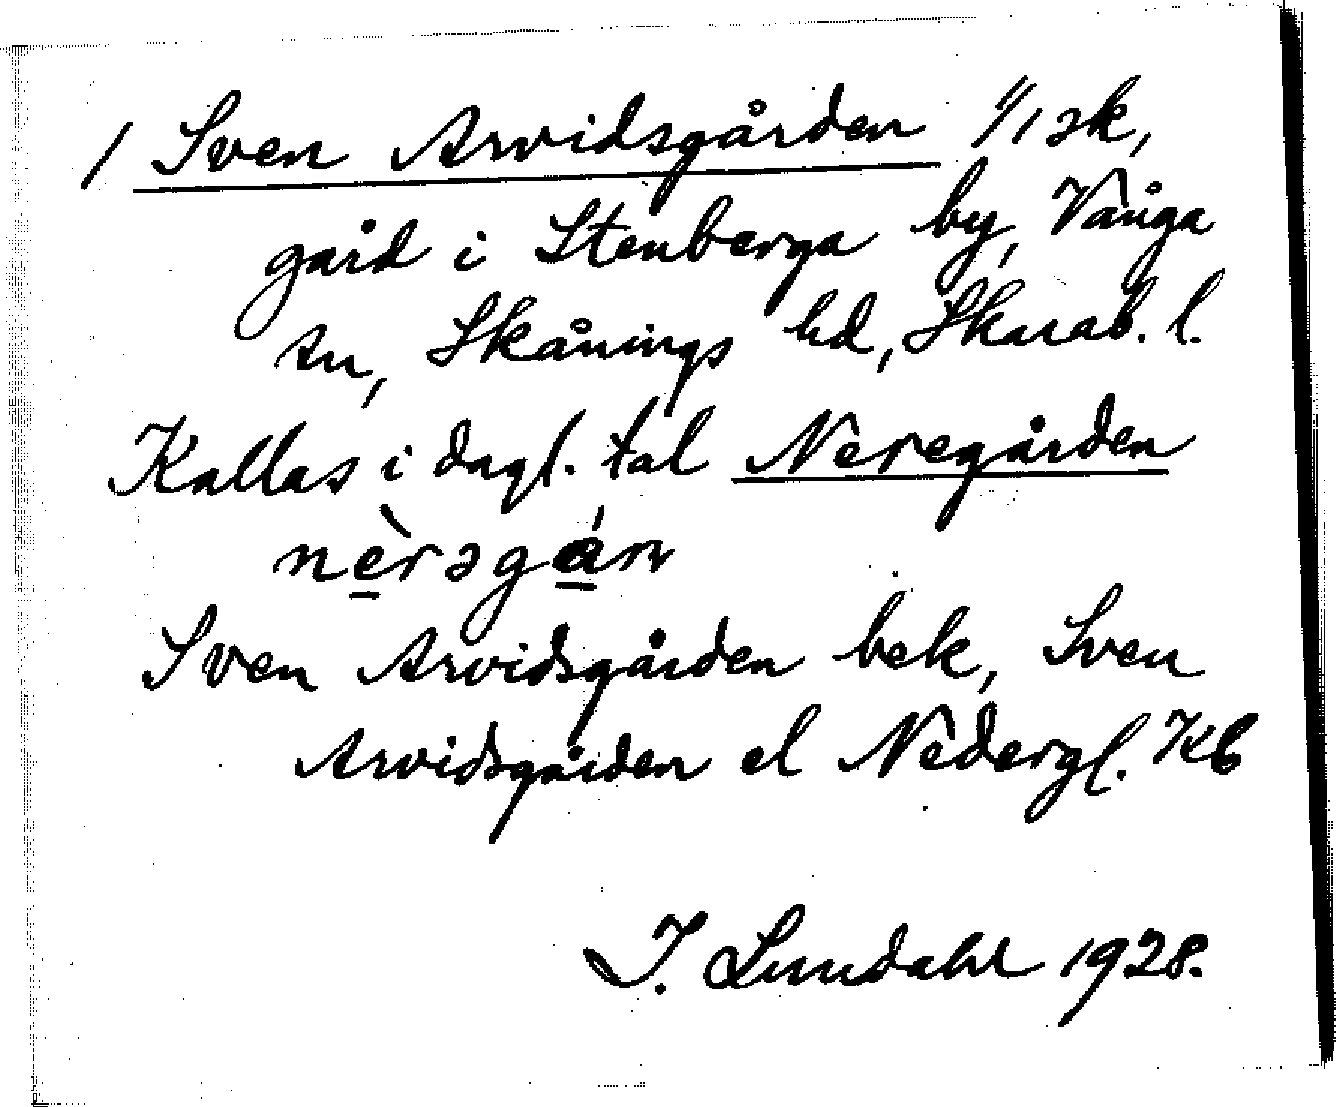 / Sven Arvidsgården 1/1 sk,
gård i Stenberga by, Vånga
sn, Skånings hd, Skarab. l.
Kallas i dagl. tal Neregården
nèrəgán
Sven Arvidsgården bek, Sven
Arvidsgården el Nedergl. Kb
I. Lundahl 1928.